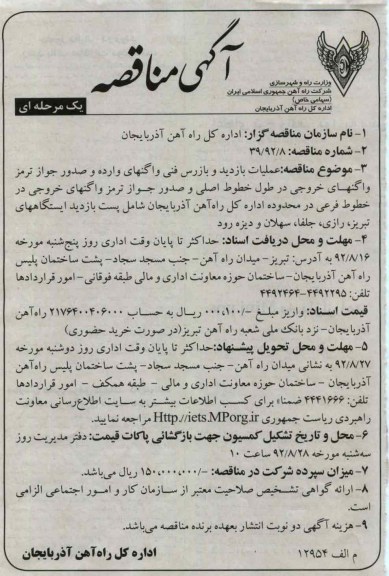 وزارت راه و شهرسازی
شرکت راه آهن جمهوری اسلامی ایران
(سهامی خاص)
اداره کل راه آهن آذربایجان
آگهی مناقصه
یک مرحله ای
۱- نام سازمان مناقصه گزار: اداره کل راه آهن آذربایجان
۲- شماره مناقصه: ۳۹/۹۲/۸
۳- موضوع مناقصه:عملیات بازدید و بازرس فنی واگنهای وارده و صدور جواز ترمز
واگنهای خروجی در طول خطوط اصلی و صدور جواز ترمز واگنهای خروجی در
خطوط فرعی در محدوده اداره کل راه‌آهن آذربایجان شامل پست بازدید ایستگاههای
تبریز، رازی، جلفا، سهلان و دیزه رود
۴- مهلت و محل دریافت اسناد: حداکثر تا پایان وقت اداری روز پنج‌شنبه مورخه
۹۲/۸/۱۶ به آدرس: تبریز- میدان راه آهن - جنب مسجد سجاد- پشت ساختمان پلیس
راه آهن آذربایجان- ساختمان حوزه معاونت اداری و مالی طبقه فوقانی- امور قراردادها
تلفن: ۴۴۹۲۲۹۵-۴۴۹۲۴۶۴
قیمت اسناد: واریز مبلغ -/۱۰۰,۰۰۰ ریال به حساب ۲۱۷۶۴۰۰۴۰۶۰۰۰ راه‌آهن
آذربایجان- نزد بانک ملی شعبه راه آهن تبریز(در صورت خرید حضوری)
۵- مهلت و محل تحویل پیشنهاد:حداکثر تا پایان وقت اداری روز دوشنبه مورخه
۹۲/۸/۲۷ به نشانی میدان راه آهن - جنب مسجد سجاد- پشت ساختمان پلیس راه‌آهن
آذربایجان - ساختمان حوزه معاونت اداری و مالی - طبقه همکف - امور قراردادها
تلفن: ۴۴۴۱۶۶۶ ضمنا» برای کسب اطلاعات بیشتر به سایت اطلاع‌رسانی معاونت
راهبردی ریاست جمهوری Http://iets.MPorg.ir مراجعه نمایید.
۶- محل و تاریخ تشکیل کمسیون جهت بازگشائی پاکات قیمت: دفتر مدیریت روز
سه‌شنبه مورخه ۹۲/۸/۲۸ ساعت ۱۰
۷- میزان سپرده شرکت در مناقصه: -/۱۵۰,۰۰۰,۰۰۰ ریال می‌باشد.
۸- ارائه گواهی تشخیص صلاحیت معتبر از سازمان کار و امور اجتماعی الزامی
است.
۹- هزینه آگهی دو نوبت انتشار بعهده برنده مناقصه می‌باشد.
م الف ۱۲۹۵۴
اداره کل راه‌آهن آذربایجان